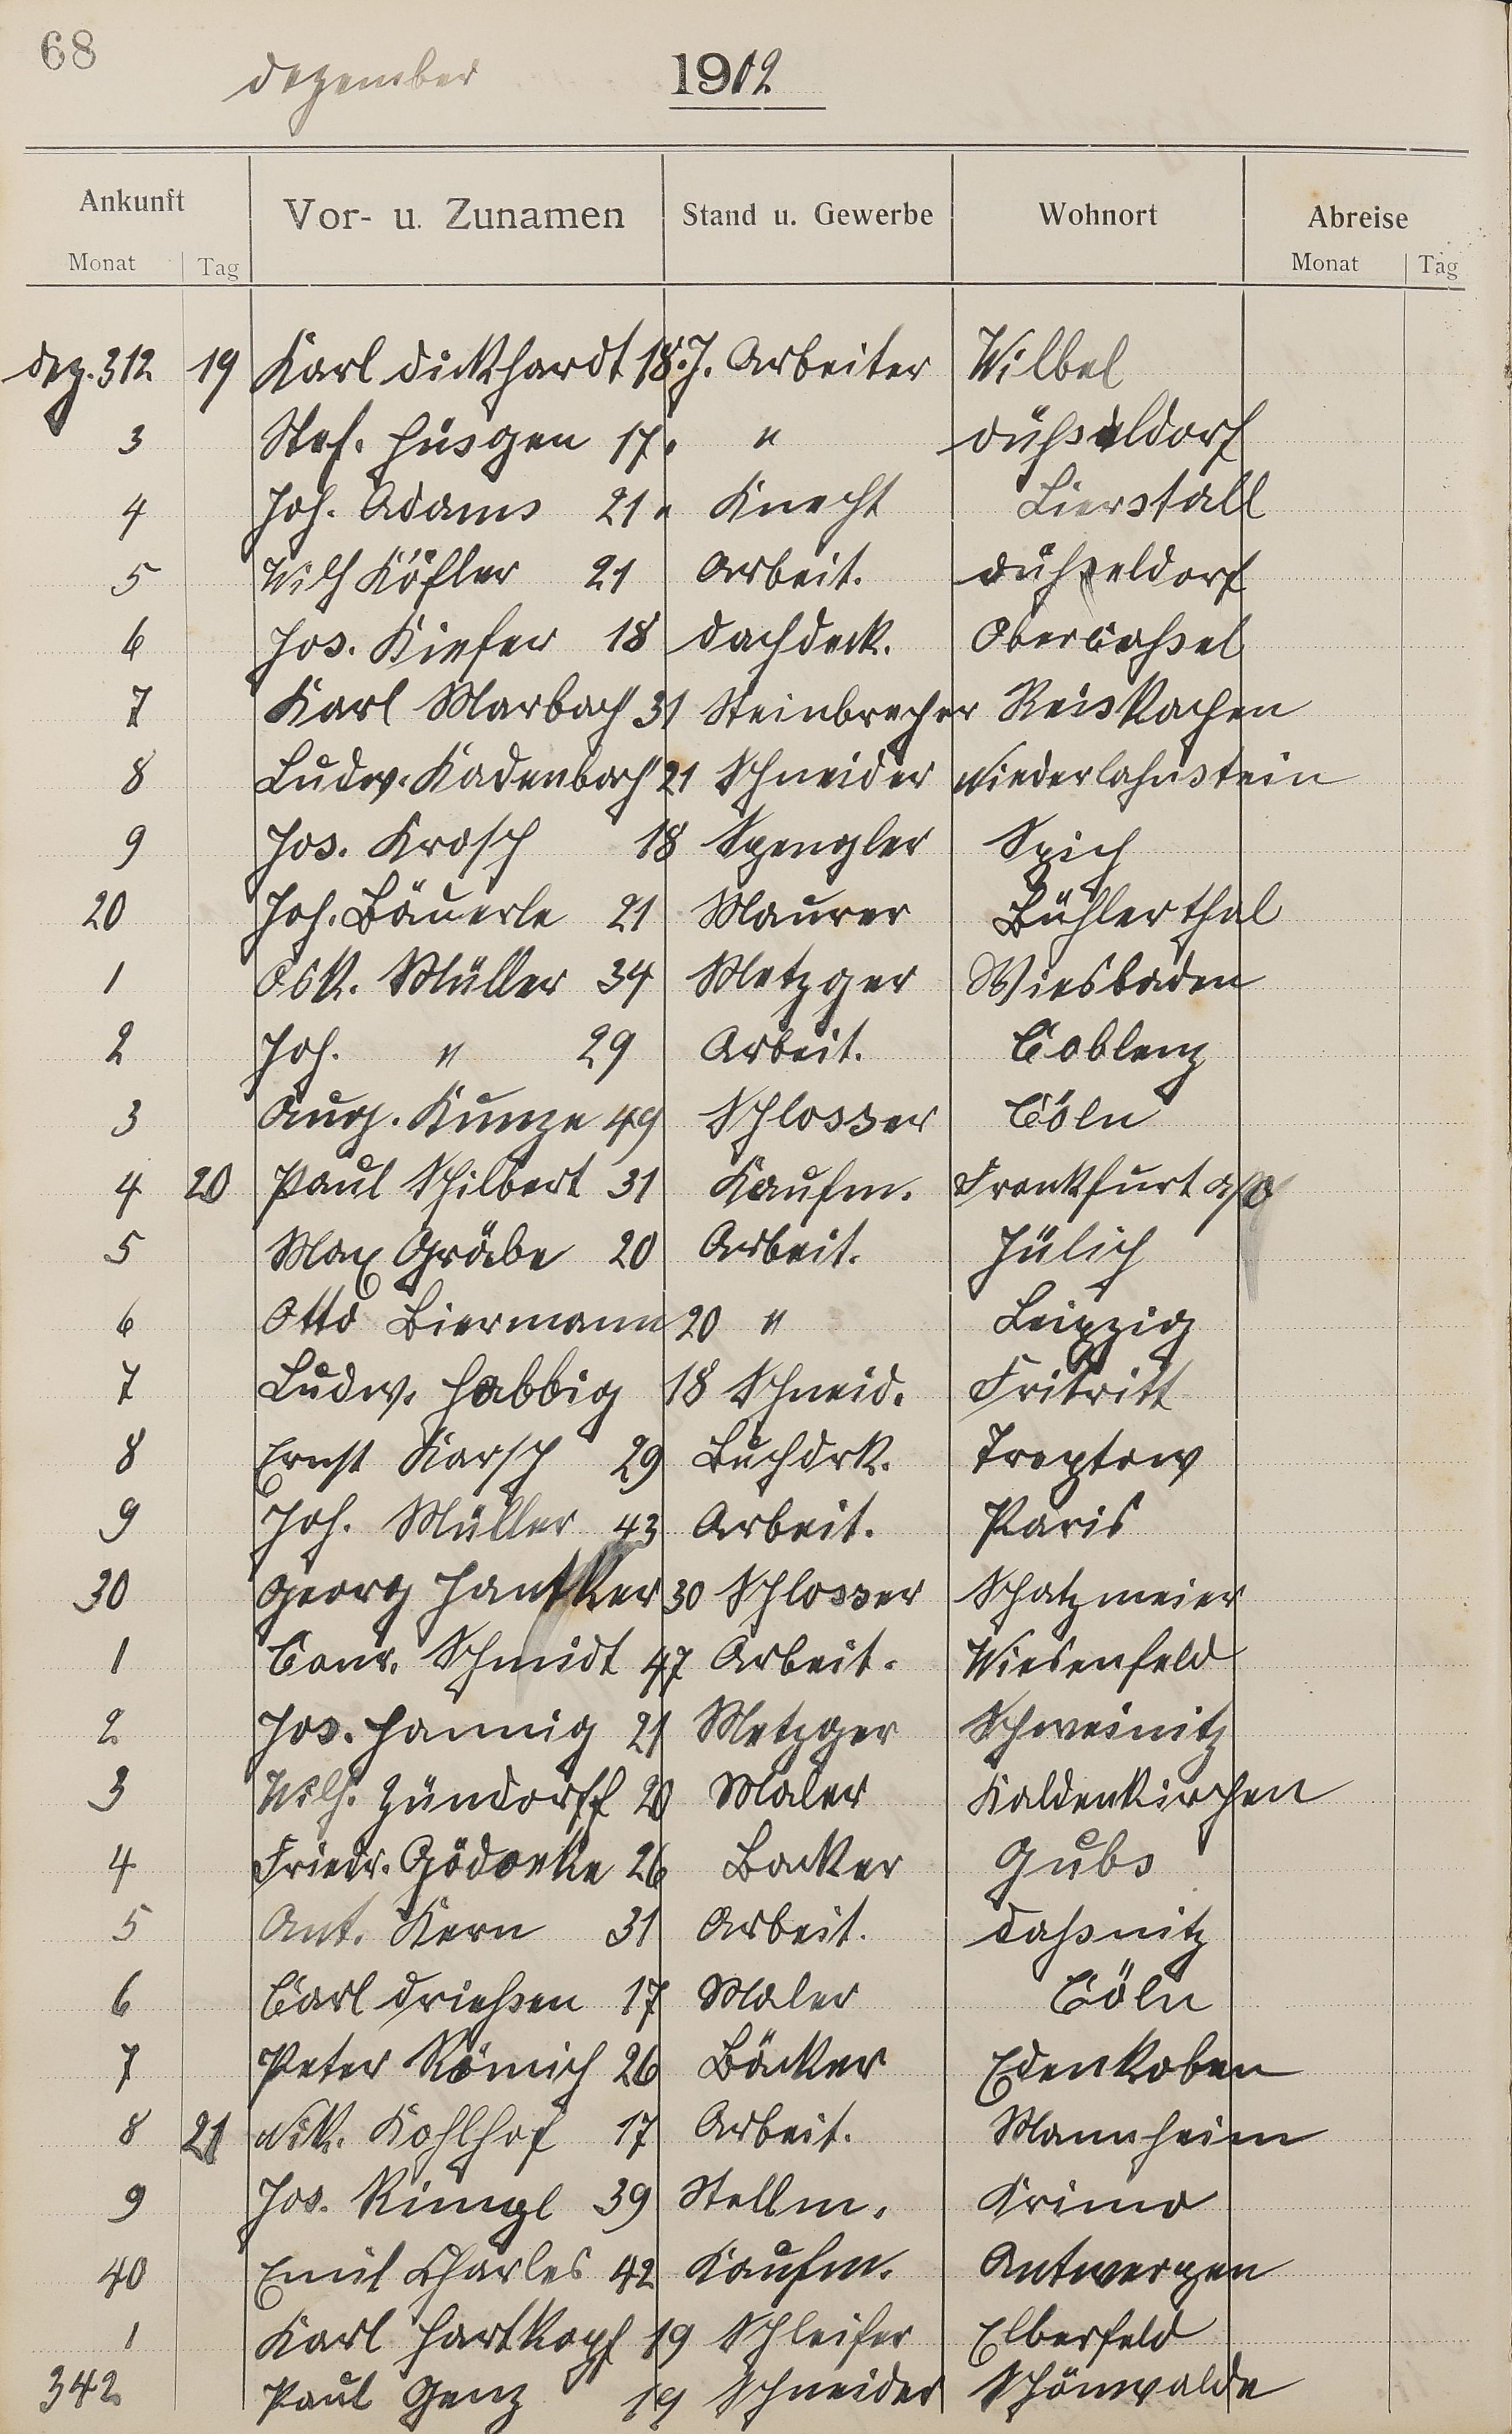 68
Dezember 1912
Ankunft Vor- u. Zunamen Stand u. Gewerbe Wohnort Abreise
Monat Tag Monat Tag
Dez. 312 19 Karl Dickhardt 18. J. Arbeiter Vilbel
3 Stef. Hüsgen 17 " " Düsseldorf
4 Joh. Adams 21 " Knecht Lierstall
5 Wilh Köfler 21 Arbeit. Düsseldorf
6 Jos. Kiefer 18 Dachdeck. Obercassel
7 Karl Marbach 31 Steinbrecher Reiskachen
8 Ludw. Kadenbach 21 Schneider Niederlahnstein
9 Jos. Krosch 18 Spengler Spich
20 Joh. Bäuerle 21 Maurer Bühlerthal
1 Osk. Müller 34 Metzger Wiesbaden
2 Joh. " 29 Arbeit. Coblenz
3 Aug. Kunze 49 Schlosser Cöln
4 20 Paul Schilbert 31 Kaufm. Frankfurt a/O
5 Max Gräbe 20 Arbeit. Jülich
6 Otto Biermann 20 " Leipzig
7 Ludw. Habbig 18 Schneid. Fritritt
8 Ernst Karsch 29 Buchdrk. Treptow
9 Joh. Müller 43 Arbeit. Paris
30 Georg Hantker 30 Schlosser Schatzmeier
1 Conr. Schmidt 47 Arbeit. Wiesenfeld
2 Jos. Hannig 21 Metzger Schweinitz
3 Wilh. Zündorff 20 Maler Kaldenkirchen
4 Friedr. Gödecke 26 Backer Gubs
5 Ant. Kern 31 Arbeit. Dassnitz
6 Carl Driessen 17 Maler Cöln
7 Peter Römich 26 Bäcker Edenkoben
8 21 Nik. Kohlhof 17 Arbeit. Mannheim
9 Jos. Rimpl 39 Stellm. Krima
40 Emil Charles 42 Kaufm. Antwerpen
1 Karl Hartkopf 19 Schleifer Elberfeld
342 Paul Genz 19 Schneider Schönwalde